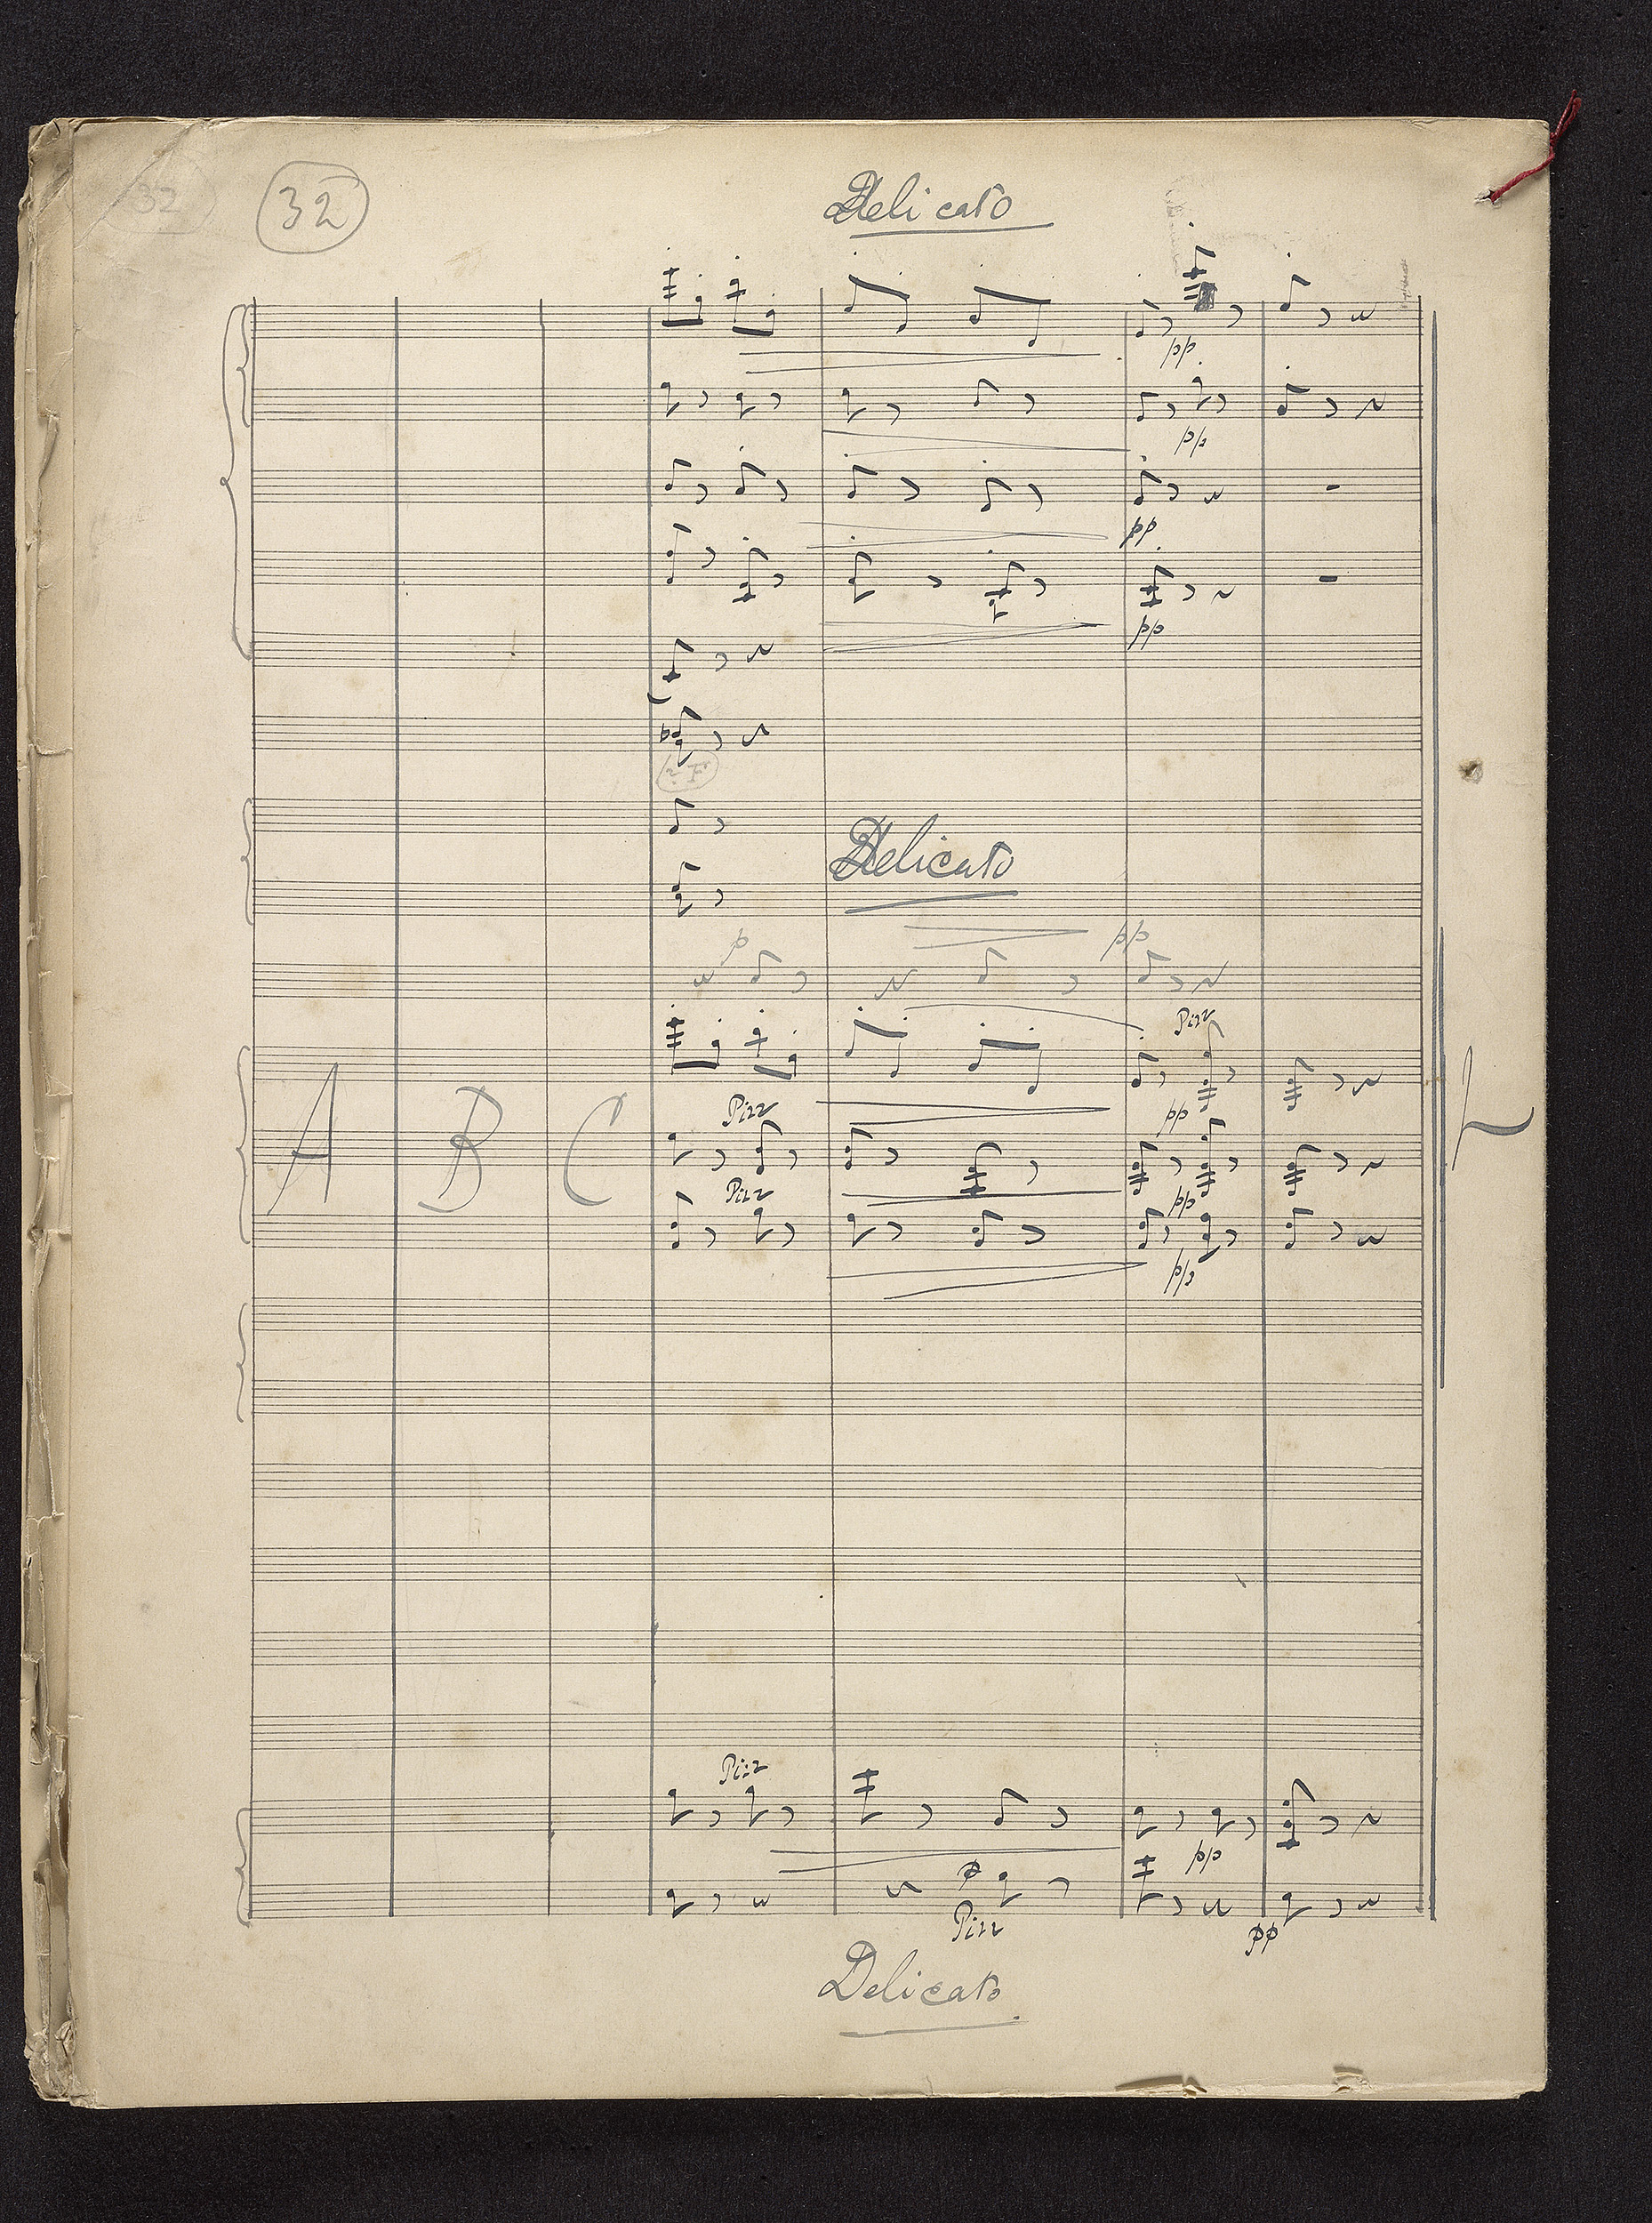 32
Delicato
pp
pp
pp
pp
Delicato
p pp
Pizz
Pizz pp
A B C
Pizz pp
pp
Pizz
pp
p
Pizz pp
Delicato